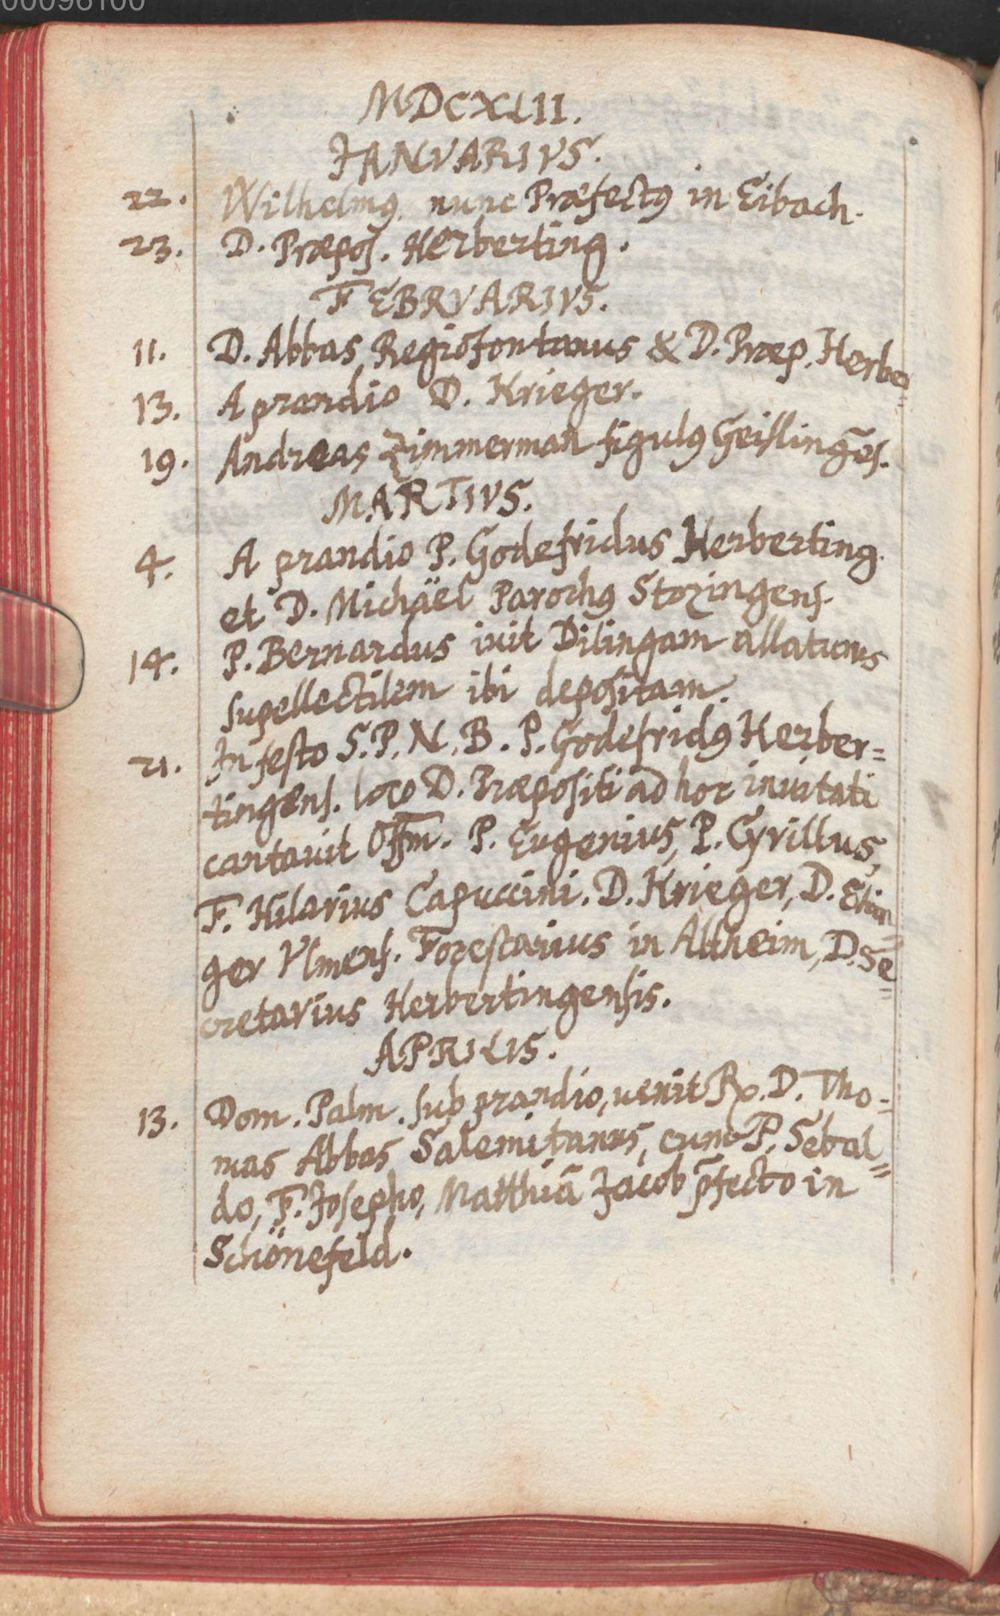 00096100
MDCXLII.
JANVARIVS.
22. Wilhelmꝰ nunc Præfectꝰ in Eibach.
23. D. Præpos. Herberting.
FEBRVARIVS.
11. D. Abbas Regiofontanus & D. Præp. Herber=
13. A prandio D. Krieger.
19. Andreas Zimmerman figulꝰ Geislinge͂s.
MARTIVS.
4. A prandio P. Godefridus Herberting.
et D. Michäel Parochꝰ Stozingens.
14. P. Bernardus iuit Dilingam allaturus
supellectilem ibi depositam.
21. In festo S. P. N. B. P. Godefridꝰ Herber=
tingens. loco D. Præpositi ad hoc inuitati
cantauit Offm. P. Eugenius, P. Cyrillus,
F. Hilarius Capuccini. D. Krieger, D. Ehin=
ger Vlmens. Forestarius in Altheim, D. Se=
cretarius Herbertingensis.
APRILIS.
13. Dom. Palm. sub prandio, uenit Rx. D. Tho=
mas Abbas Salemitanus, cum P. Sebal=
do, F. Josepho, Matthiā Jacob p̄fecto in
Schönefeld.